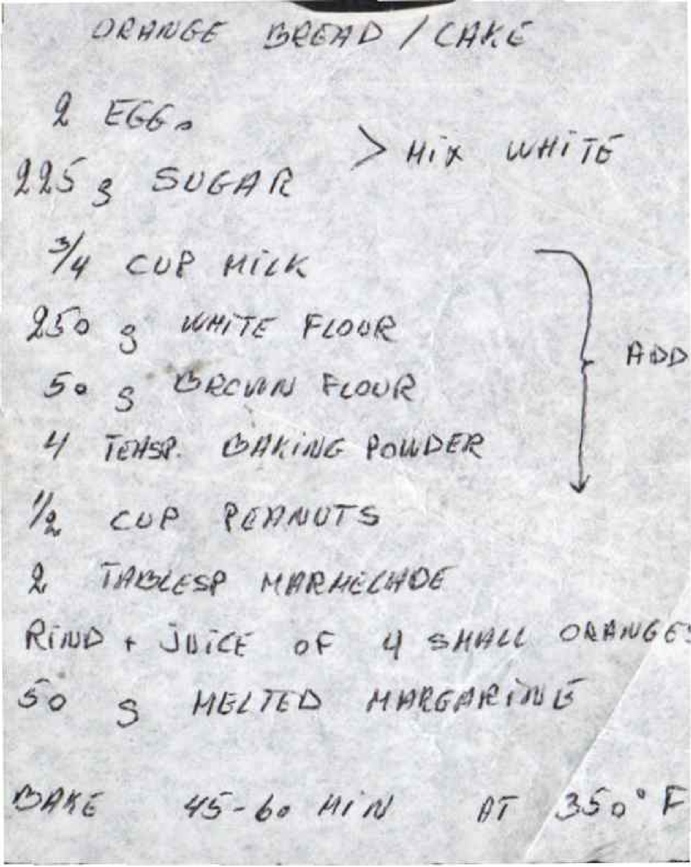 ORANGE BREAD / CAKE
2 EGGs
> MiX WHiTE
225 g SUGAR
3/4 CUP MiLK
250 g WHiTE FLOUR
ADD
50 g BROWN FLOUR
4 TEASP. BAKiNG POWDER
1/2 CUP PEANUTS
2 TABLESP MARMELADE
RiND + JUiCE OF 4 SMALL ORANGES
50 g MELTED MARGARiNE
BAKE 45-60 MiN AT 350° F